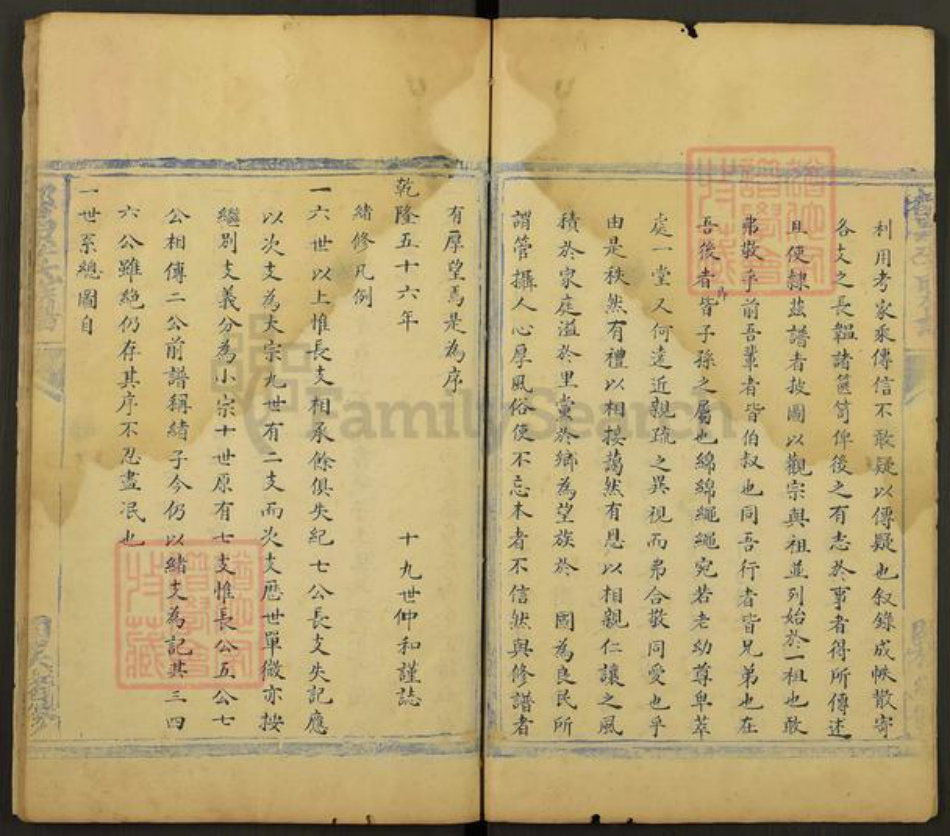 利用考家乘傳信不敢疑以傳疑也叙錄成帙散寄
各支之長韞諸篋笥俾後之有志於事者得所傳述
且使隸茲譜者披圖以觀宗與祖並列始於一祖也敢
弗敬乎前吾輩者皆伯叔也同吾行者皆兄弟也在
吾後者皆子孫之屬也綿綿繩繩宛若老幼尊卑萃
處一堂又何遠近親疏之異視而弗合敬同愛也乎
由是秩然有禮以相接藹然有恩以相親仁讓之風
積於家庭溢於里黨於鄉為望族於 國為良民所
謂管攝人心厚風俗使不忘本者不信然與修譜者
有厚望焉是為序
乾隆五十六年 十九世仲和謹誌
緒修凡例
一六世以上惟長支相承餘俱失紀七公長支失記應
以次支為大宗九世有二支而次支歷世單微亦按
繼別支義分為小宗十世原有七支惟長公五公七
公相傳二公前譜稱緒子今仍以緒支為記其三四
六公雖絶仍存其序不忍盡泯也
一世系總圖自
FamilySearch